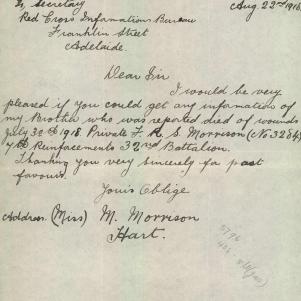 Secretary
Aug 22nd 1918.
Red Cross Information Bureau
Franklin Street
Adelaide.
Dear Sir
I would be very
pleased if you could get any information of
my Brother who was reported died of wounds
July 30th 1918. Private F. R. S. Morrison (No. 3284)
7th Reinfacements 32nd Battalion.
Thanking you very sincerely for past
favours.
Yours Oblige
Address. (Miss) M. Morrison
Hart.